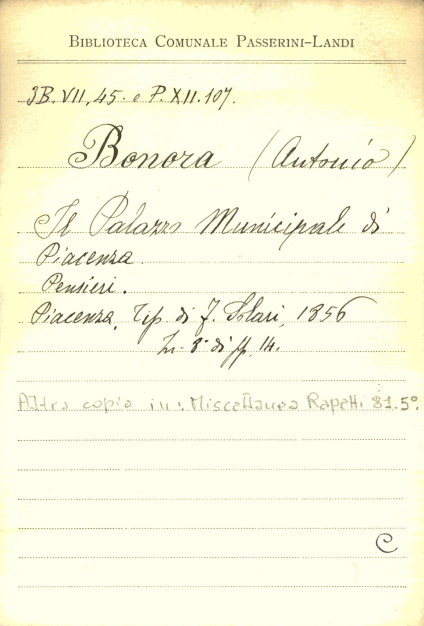 BIBLIOTECA COMUNALE PASSERINI-LANDI
JB. VII, 45. e P. XII. 107.
Bonora (Antonio)
Il Palazzo Municipale di
Piacenza.
Pensieri.
Piacenza, Tip. di F. Solari, 1856
In-8° di pp. 14.
Altra copia in: Miscellanea Rapetti 81.5°.
C